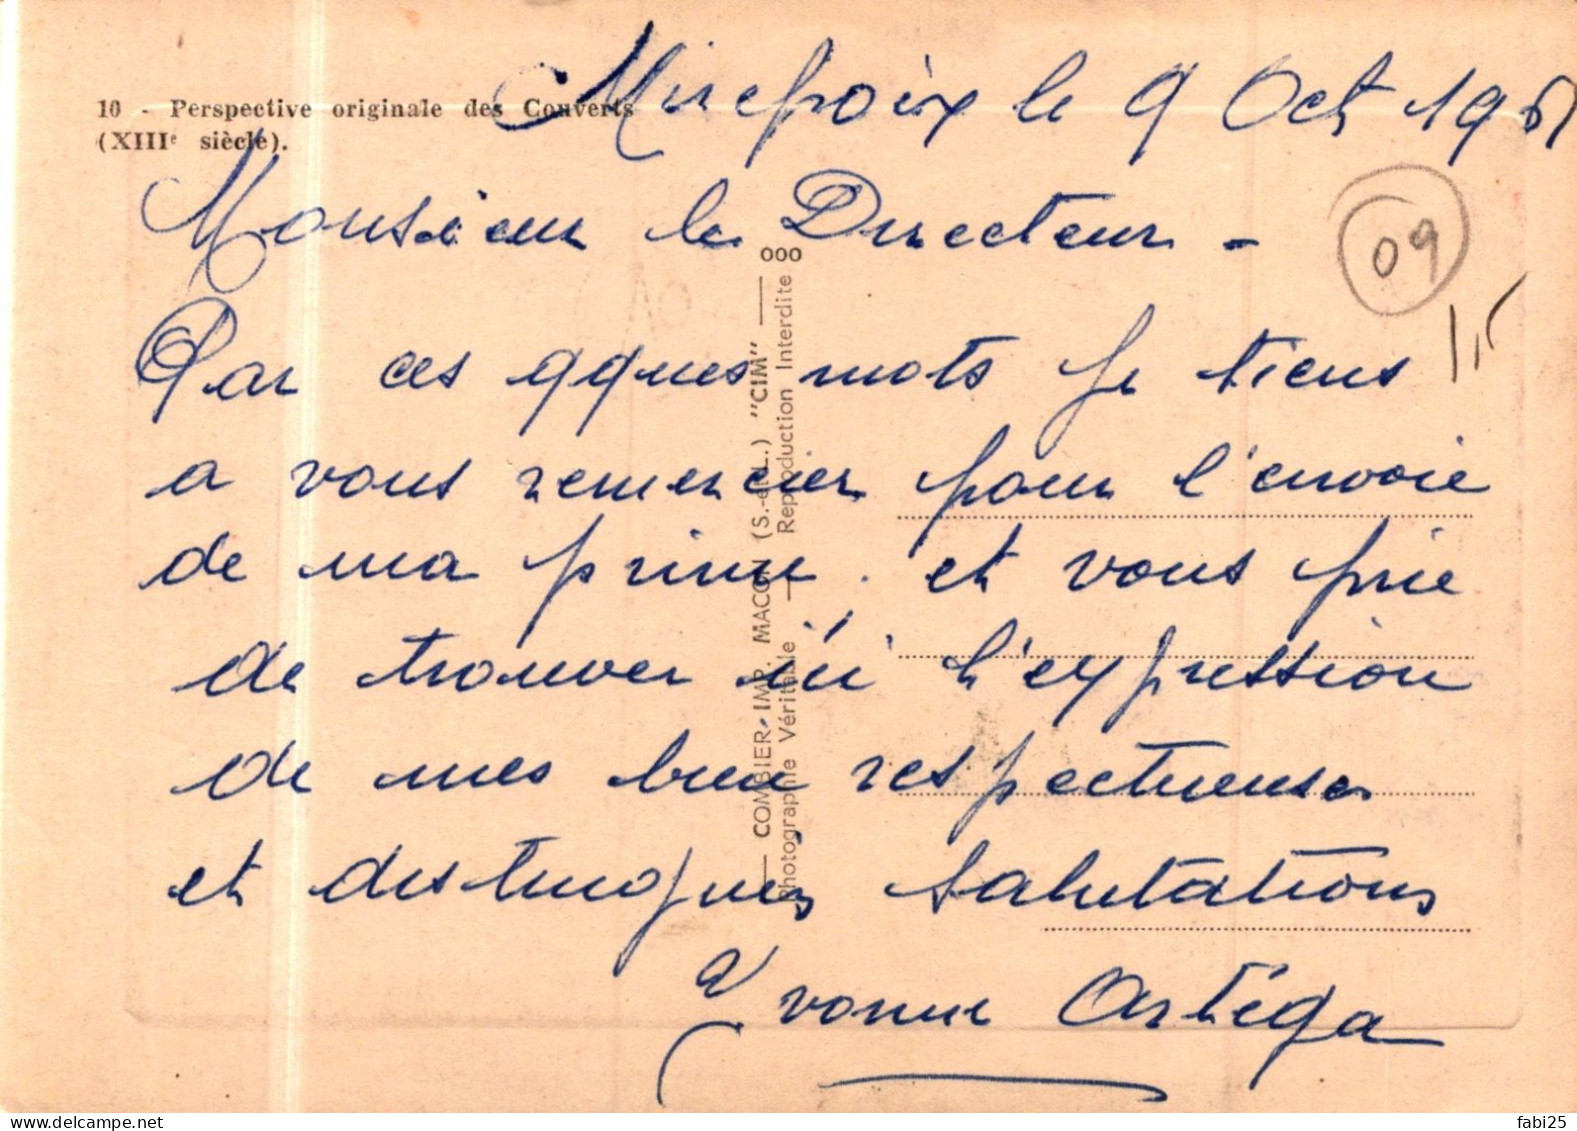 10 - Perspective originale des Couverts
(XIIIe siècle).
Mirepoix le 9 Oct 196
Monsieur le Directeur -
09
1,5
Par ces qques mots je tiens
a vous remercier pour l'envoie
de ma prime. et vous prie
de trouver ici l'expression
de mes bien respectueuses
et distingués salutations
Yvonne Ortéga
COMBIER IMP. MACON (S.-et-L.) "CIM"
Photographie Véritable — Reproduction Interdite
ooo
fabi25